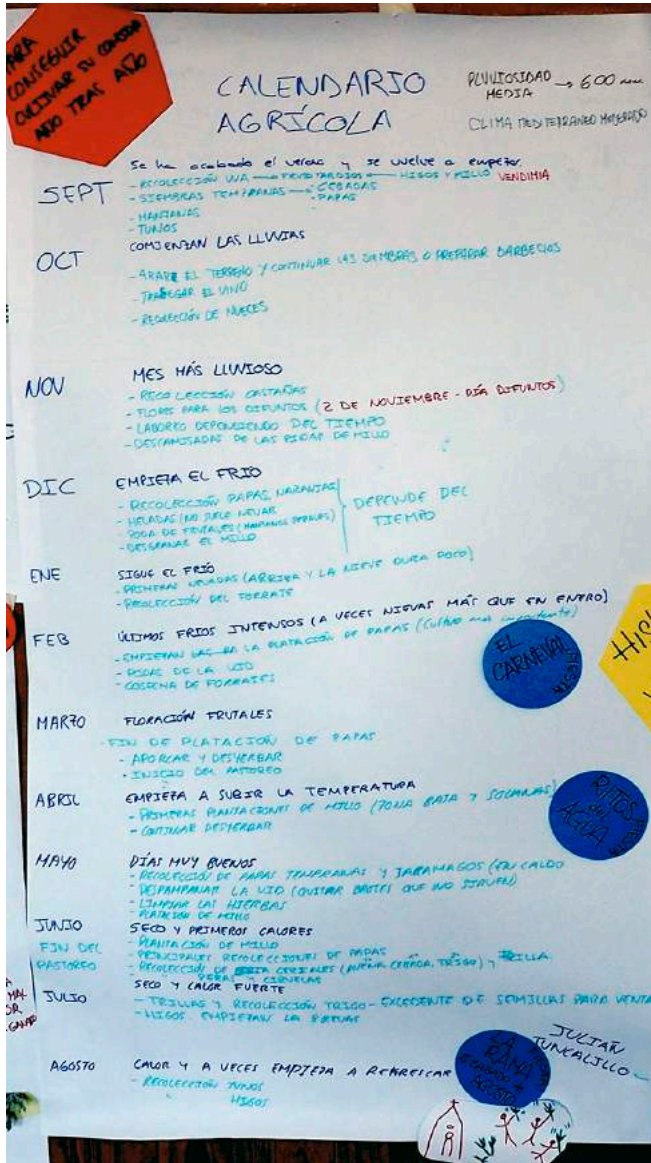 PARA
CONSEGUIR
CULTIVAR SU COMIDA
AÑO TRAS AÑO
CALENDARIO
AGRÍCOLA
PLUVIOSIDAD
MEDIA → 600 mm
CLIMA MEDITERRANEO MODERADO
Se ha acabado el verano y se vuelve a empezar.
SEPT
- RECOLECCIÓN UVA — HIGOS Y MILLO VENDIMIA
- SIEMBRAS TEMPRANAS — CEBADAS
- PAPAS
- MANZANAS
- TUNOS
COMIENZAN LAS LLUVIAS
OCT
- ARAR EL TERRENO Y CONTINUAR LAS SIEMBRAS O PREPARAR BARBECHOS
- TRASEGAR EL VINO
- RECOLECCIÓN DE NUECES
MES MÁS LLUVIOSO
NOV
- RECOLECCIÓN CASTAÑAS
- FLORES PARA LOS DIFUNTOS (2 DE NOVIEMBRE - DÍA DIFUNTOS)
- LABOREO DEPENDIENDO DEL TIEMPO
- DESCAMISADAS DE LAS PIÑAS DE MILLO
EMPIEZA EL FRIO
DIC
- RECOLECCIÓN PAPAS, NARANJAS
- HELADAS (NO SUELE NEVAR
- PODA DE FRUTALES (MANZANOS PERALES)
- DESGRANAR EL MILLO
DEPENDE DEL
TIEMPO
ENE
SIGUE EL FRÍO
- PRIMERAS NEVADAS (ARRIBA Y LA NIEVE DURA POCO)
- RECOLECCIÓN DEL FORRAJE
FEB
ÚLTIMOS FRIOS INTENSOS (A VECES NIEVAS MÁS QUE EN ENERO)
- EMPIEZAN LA PLATACIÓN DE PAPAS (Cultivo más importante)
- PODAS DE LA VID
- COSECHA DE FORRAJES
EL
CARNEVAL
FIESTA
HIS
MARZO
FLORACIÓN FRUTALES
- FIN DE PLATACIÓN DE PAPAS
- APORCAR Y DESYERBAR
- INICIO DEL PASTOREO
ABRIL
EMPIEZA A SUBIR LA TEMPERATURA
- PRIMERAS PLANTACIONES DE MILLO (ZONA BAJA Y SOLANAS)
- CONTINUAR DESYERBAR
RITOS
del
AGUA
FIESTA
MAYO
DÍAS MUY BUENOS
- RECOLECCIÓN DE PAPAS TEMPRANAS Y JARAMAGOS (EN CALDO
- DESPAMPANAR LA VID (QUITAR BROTES QUE NO SIRVEN)
- LIMPIAR LAS HIERBAS
- PLATACIÓN DE MILLO
JUNIO
SECO Y PRIMEROS CALORES
FIN DEL
PASTOREO
- PLANTACIÓN DE MILLO
- PRINCIPALES RECOLECCIONES DE PAPAS
- RECOLECCIÓN DE CEREALES (AVENA, CEBADA, TRIGO) Y TRILLA
PERAS Y CIRUELAS
JULIO
SECO Y CALOR FUERTE
- TRILLAS Y RECOLECCIÓN TRIGO - EXCEDENTE DE SEMILLAS PARA VENTA
- HIGOS. EMPIEZAN LA
AGOSTO
CALOR Y A VECES EMPIEZA A REFRESCAR
- RECOLECCIÓN TUNOS
HIGOS
LA
RAMA
SABADO
AGOSTO
JULIAN
JUNCALILLO